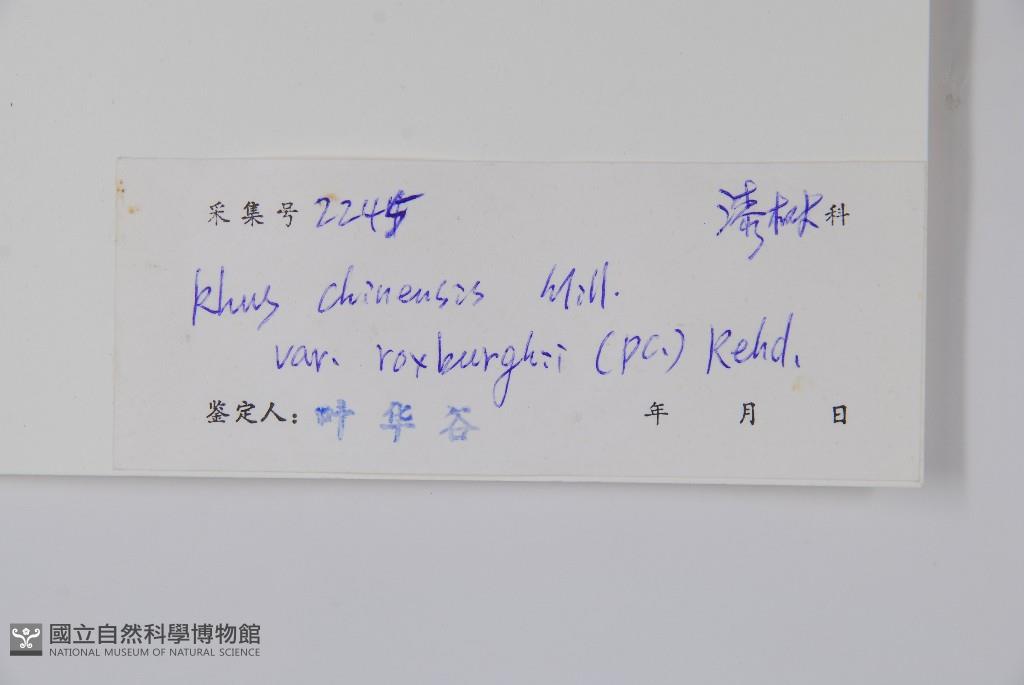 采集号 2245 漆树科
Rhus chinensis Mill.
var. roxburghii (DC.) Rehd.
鉴定人: 叶华谷 年 月 日
國立自然科學博物館
NATIONAL MUSEUM OF NATURAL SCIENCE